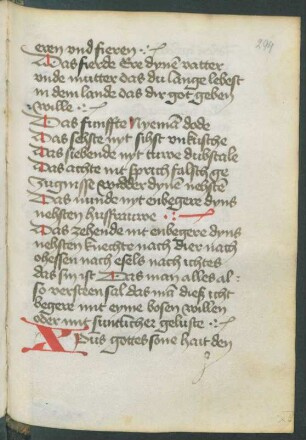 299
eren vnd fieren
Das fierde Ere dynen vatter
vnde mutter das du lange lebest
in dem lande das dir got geben
wille
Das funffte Nyeman dode
Das sehste nyt sihst vnkusche
Das siebende nyt
Das achte nit sprich falsch ge
zugnisse widder dynen nehsten
Das nunde nyt enbegere dyns
nehsten hussfrauwe
Das zehende nit enbegere dyns
nehsten knechte nach dier nach
ohessen nach esels nach ichtes
das sin ist Das man alles al
so versteen sal das man dieß icht
begere mit eyme bosen willen
oder mit suntlicher geluste
Xpus gottes sone hait den